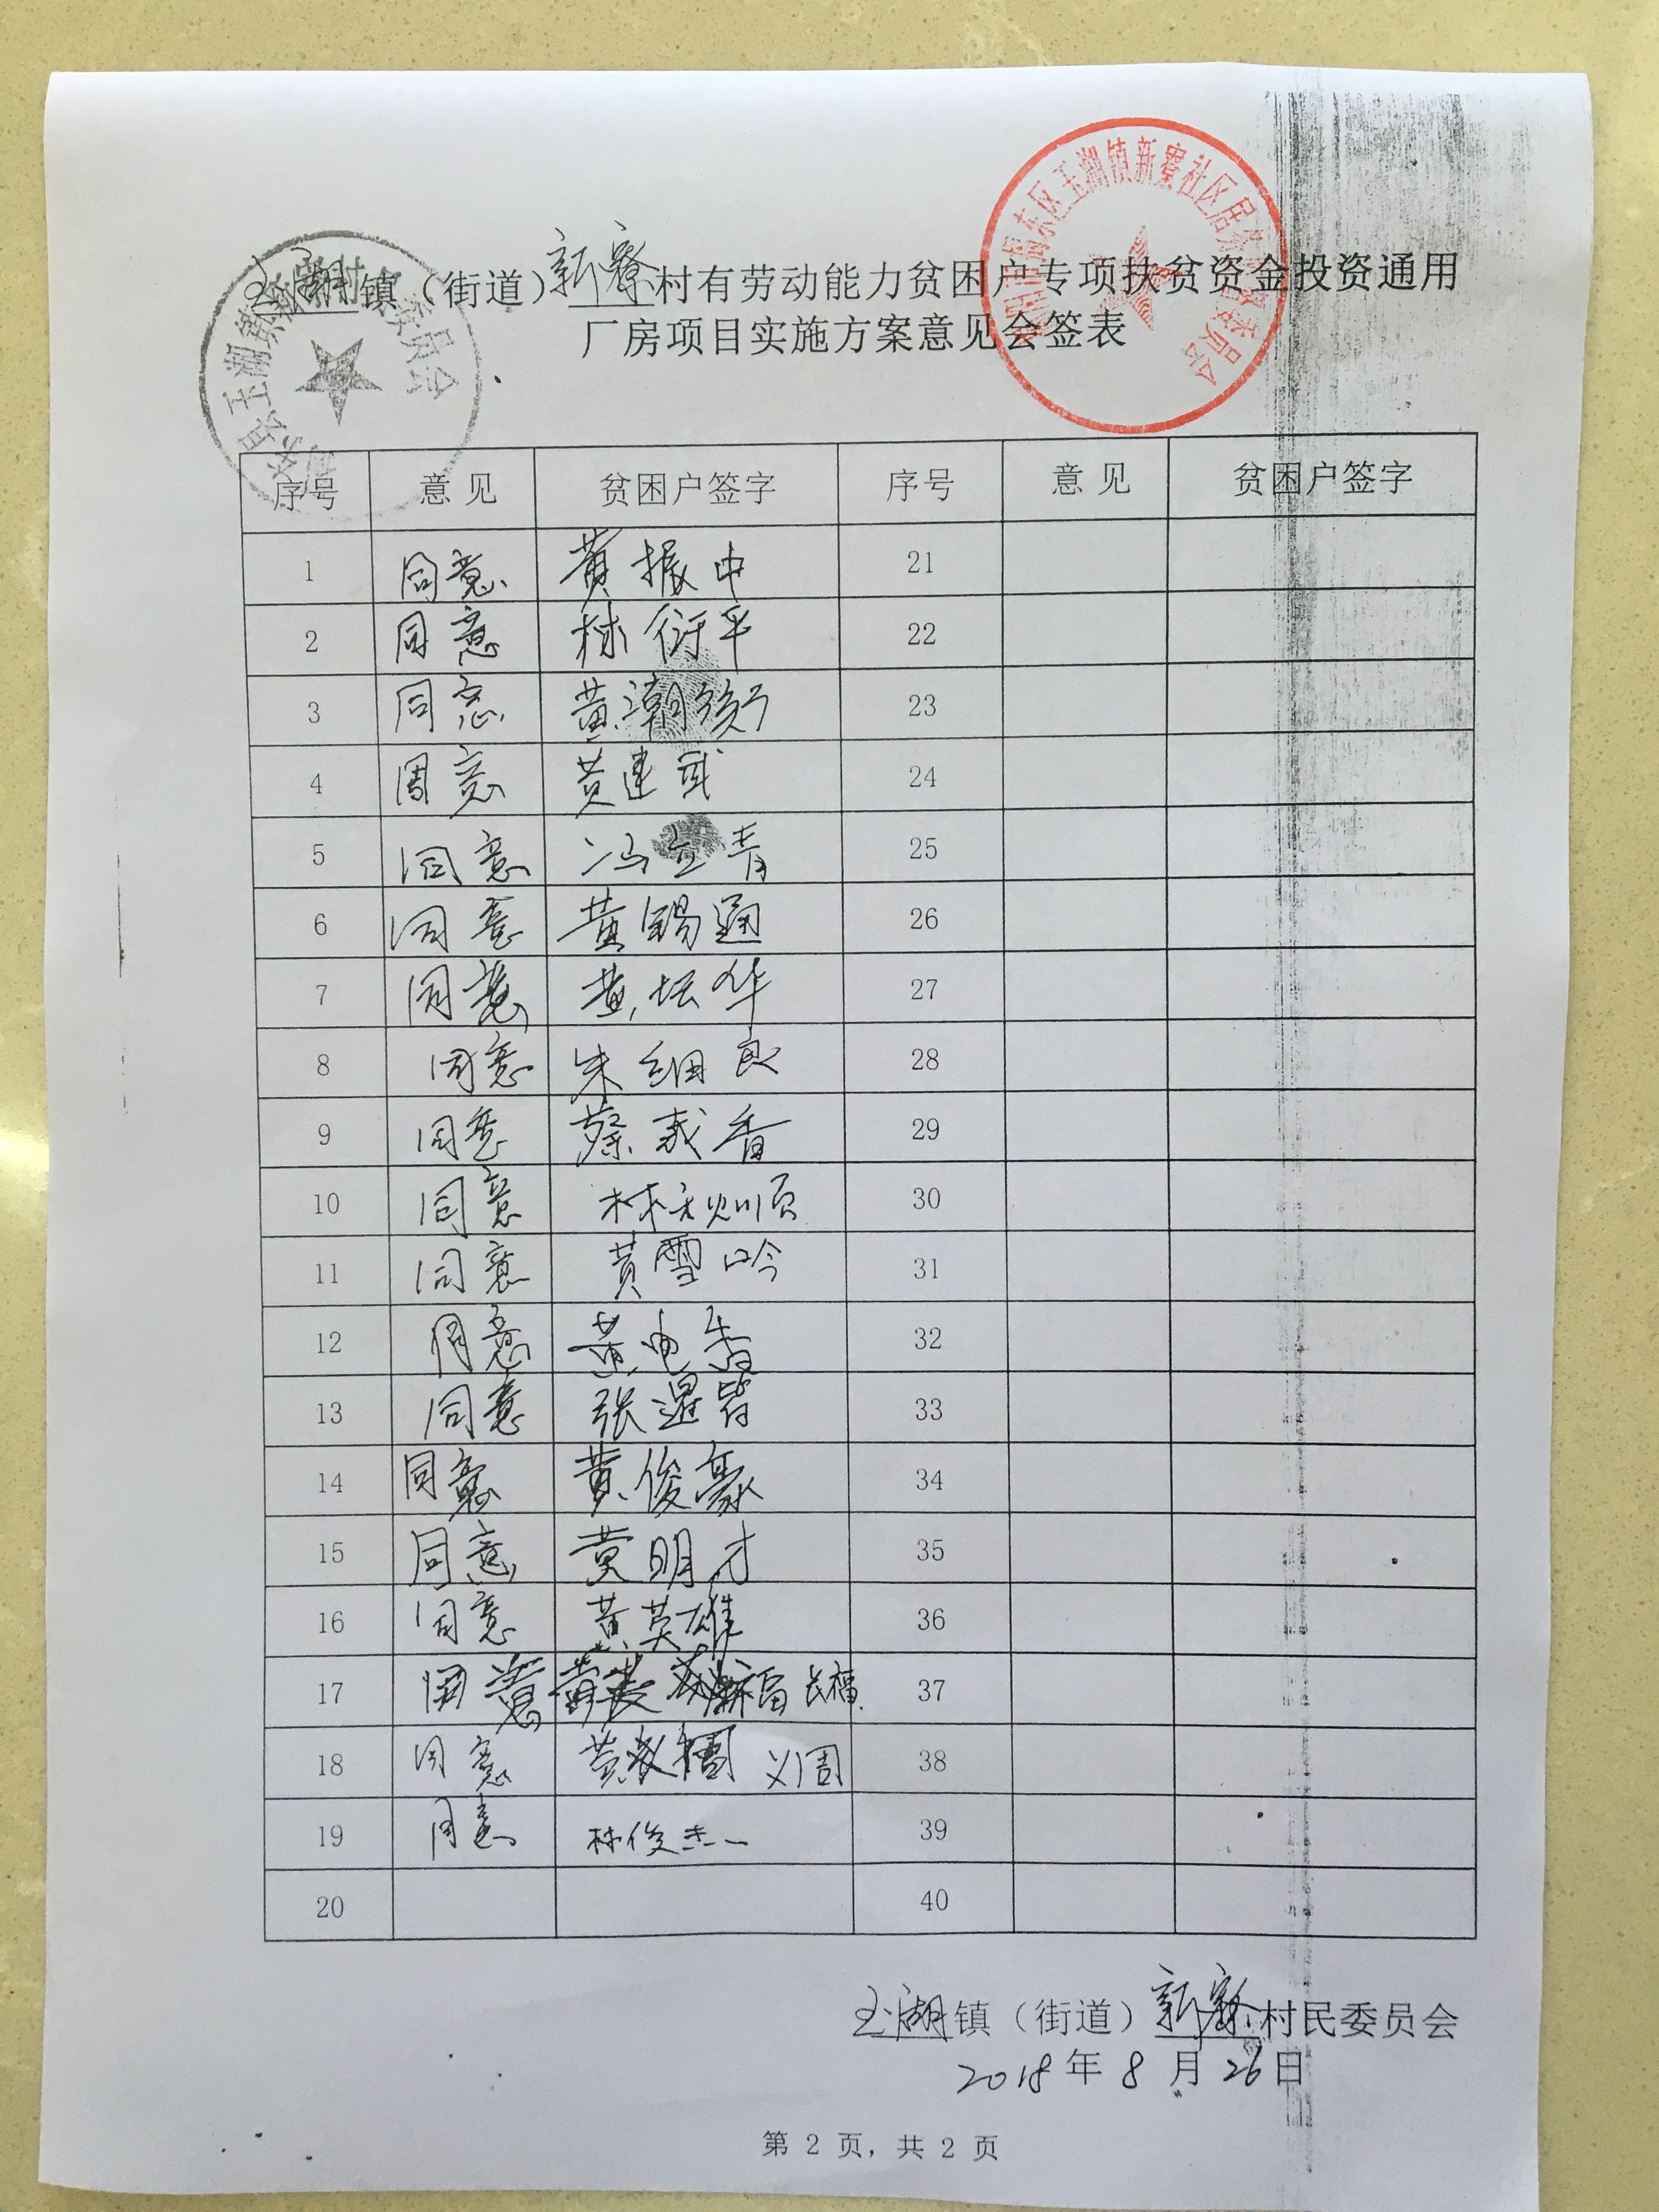 玉湖镇（街道）新寮村有劳动能力贫困户专项扶贫资金投资通用
厂房项目实施方案意见会签表
序号 意见 贫困户签字 序号 意见 贫困户签字
1 同意 黄振中 21
2 同意 林衍平 22
3 同意 黄潮 23
4 同意 黄建武 24
5 同意 冯立青 25
6 同意 黄锡通 26
7 同意 黄坛华 27
8 同意 朱细良 28
9 同意 蔡戎香 29
10 同意 林秋顺 30
11 同意 黄雪吟 31
12 同意 黄电香 32
13 同意 张暹皆 33
14 同意 黄俊豪 34
15 同意 黄明才 35
16 同意 黄英雄 36
17 同意 黄 长福 37
18 同意 黄 义周 38
19 同意 林俊杰 39
20 40
玉湖镇（街道）新寮村民委员会
2018年8月26日
第 2 页，共 2 页
东区玉湖镇新寮社区居 委员会
玉湖镇 委员会